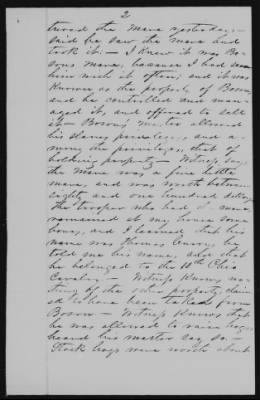 2
the Mare yesterday,
said he saw the mare and
took it:— I knew it was Bo-
sons Mare, because I had seen
him with it often, and it was
known as the property of Boson,
and he controlled and man-
aged it, and offered to sell
it— Bosons' master allowed
his slaves privileges, and a-
mong the privileges, that of
holding property— Witness says
the Mare was a fine little
mare, and was worth between
eighty and one hundred dollars
the trooper who had mare,
remained at my house some
hours, and I learned that his
name was Thomas he
told me his name, also that
he belonged to the 10th Ohio
Cavalry— Witness knows no-
thing of the other property, claim-
ed to have been taken from
Boson— Witness knows that
he was allowed to raise hogs
heard his master say so—
Stock hogs were worth about